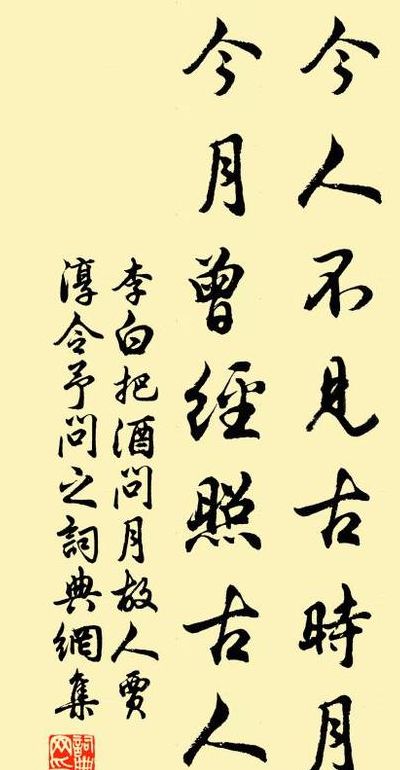 今人不見古時月
今月曾經照古人
李白把酒問月故人賈
淳令予問之詞典網集
詞典網